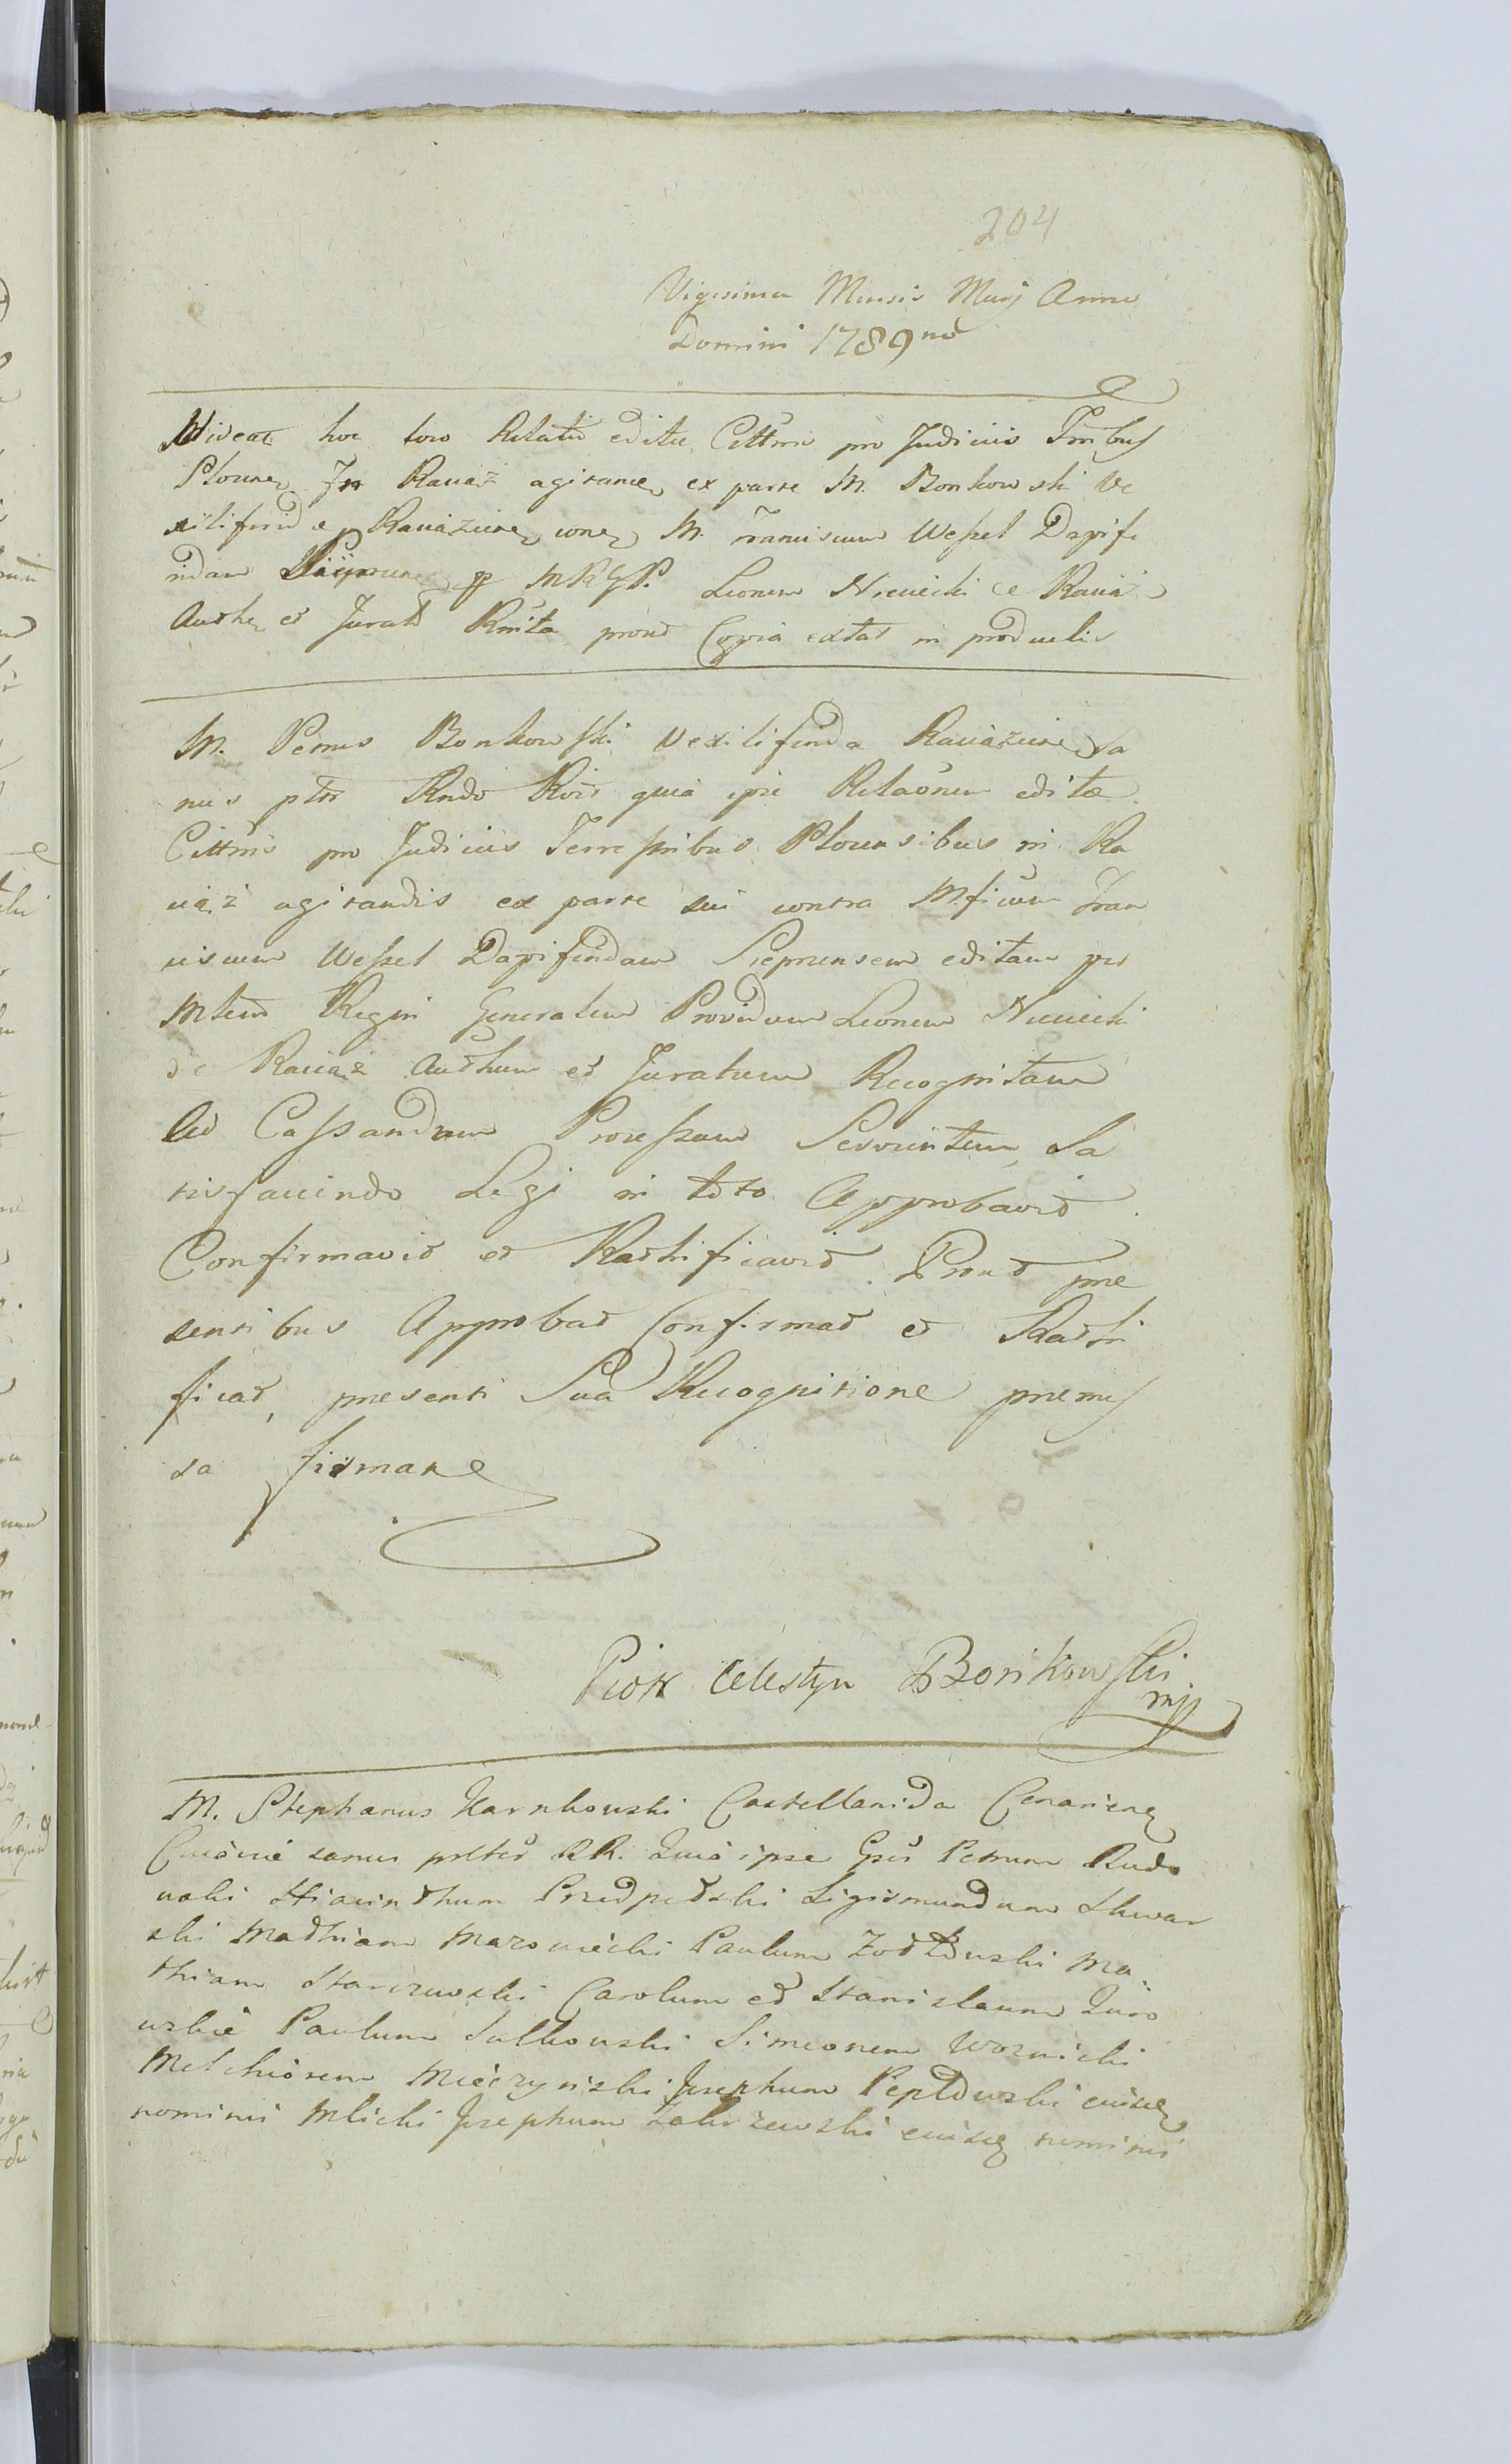 204
Vigesima Mensis Maij Anno
Domini 1789no
Niveat hoc loco Relatio editae Cittnis pro Judiciis Tribus
Plocne In Raciąż agitane ex parte M. Bonkowski Ve
xiliferid e Raciązine cone M. Franciscum Wessel Dapife
ridam p MRGP. Leonem Niciecki e Raciąż
Authe et Jurat Rnita prout Copia extat in productis
M. Petrus Bonkowski Vexiliferida Raciązine sa
nus pttr Rndo Rcit quia ipse Relaonem editae
Cittnis pro Judiciis Terrestribus Plocensibus in Ra
ciąż agitandis ex parte sui contra Mficum Fran
ciscum Wessel Dapiferidam Sieprcensem editam per
Mlem Regni Generalem Providum Leonem Niciecki
de Raciąż Authum et Juratum Recognitam
Ad Cassandum Processum Servientem, Sa
tisfaciendo Legi in toto Approbavit
Confirmavit et Rathificavit. Prout pre
sentibus Approbat Confirmat et Rathi
ficat, presenti Sua Recognitione premis
sa firmare
Piotr Celestyn Bonkowski
mp
M. Stephanus Karnkowski Castellanida
sanus prltes RR. Quia ipse Gsos Petrum Rudo
wski Hiacinthum Przedpełski Sigismundum Skwar
ski Mathiam Mazowiecki Paulum Zołtowski Ma
thiam Starczewski Carolum et Stanislaum Zuro
wskie Paulum Sulkowski Simeonem Woznicki
Melchiorem Mieczynski Josephum Pepłowski eiusq
nominis Mlicki Josephum Zakrzewski eiusq nominis